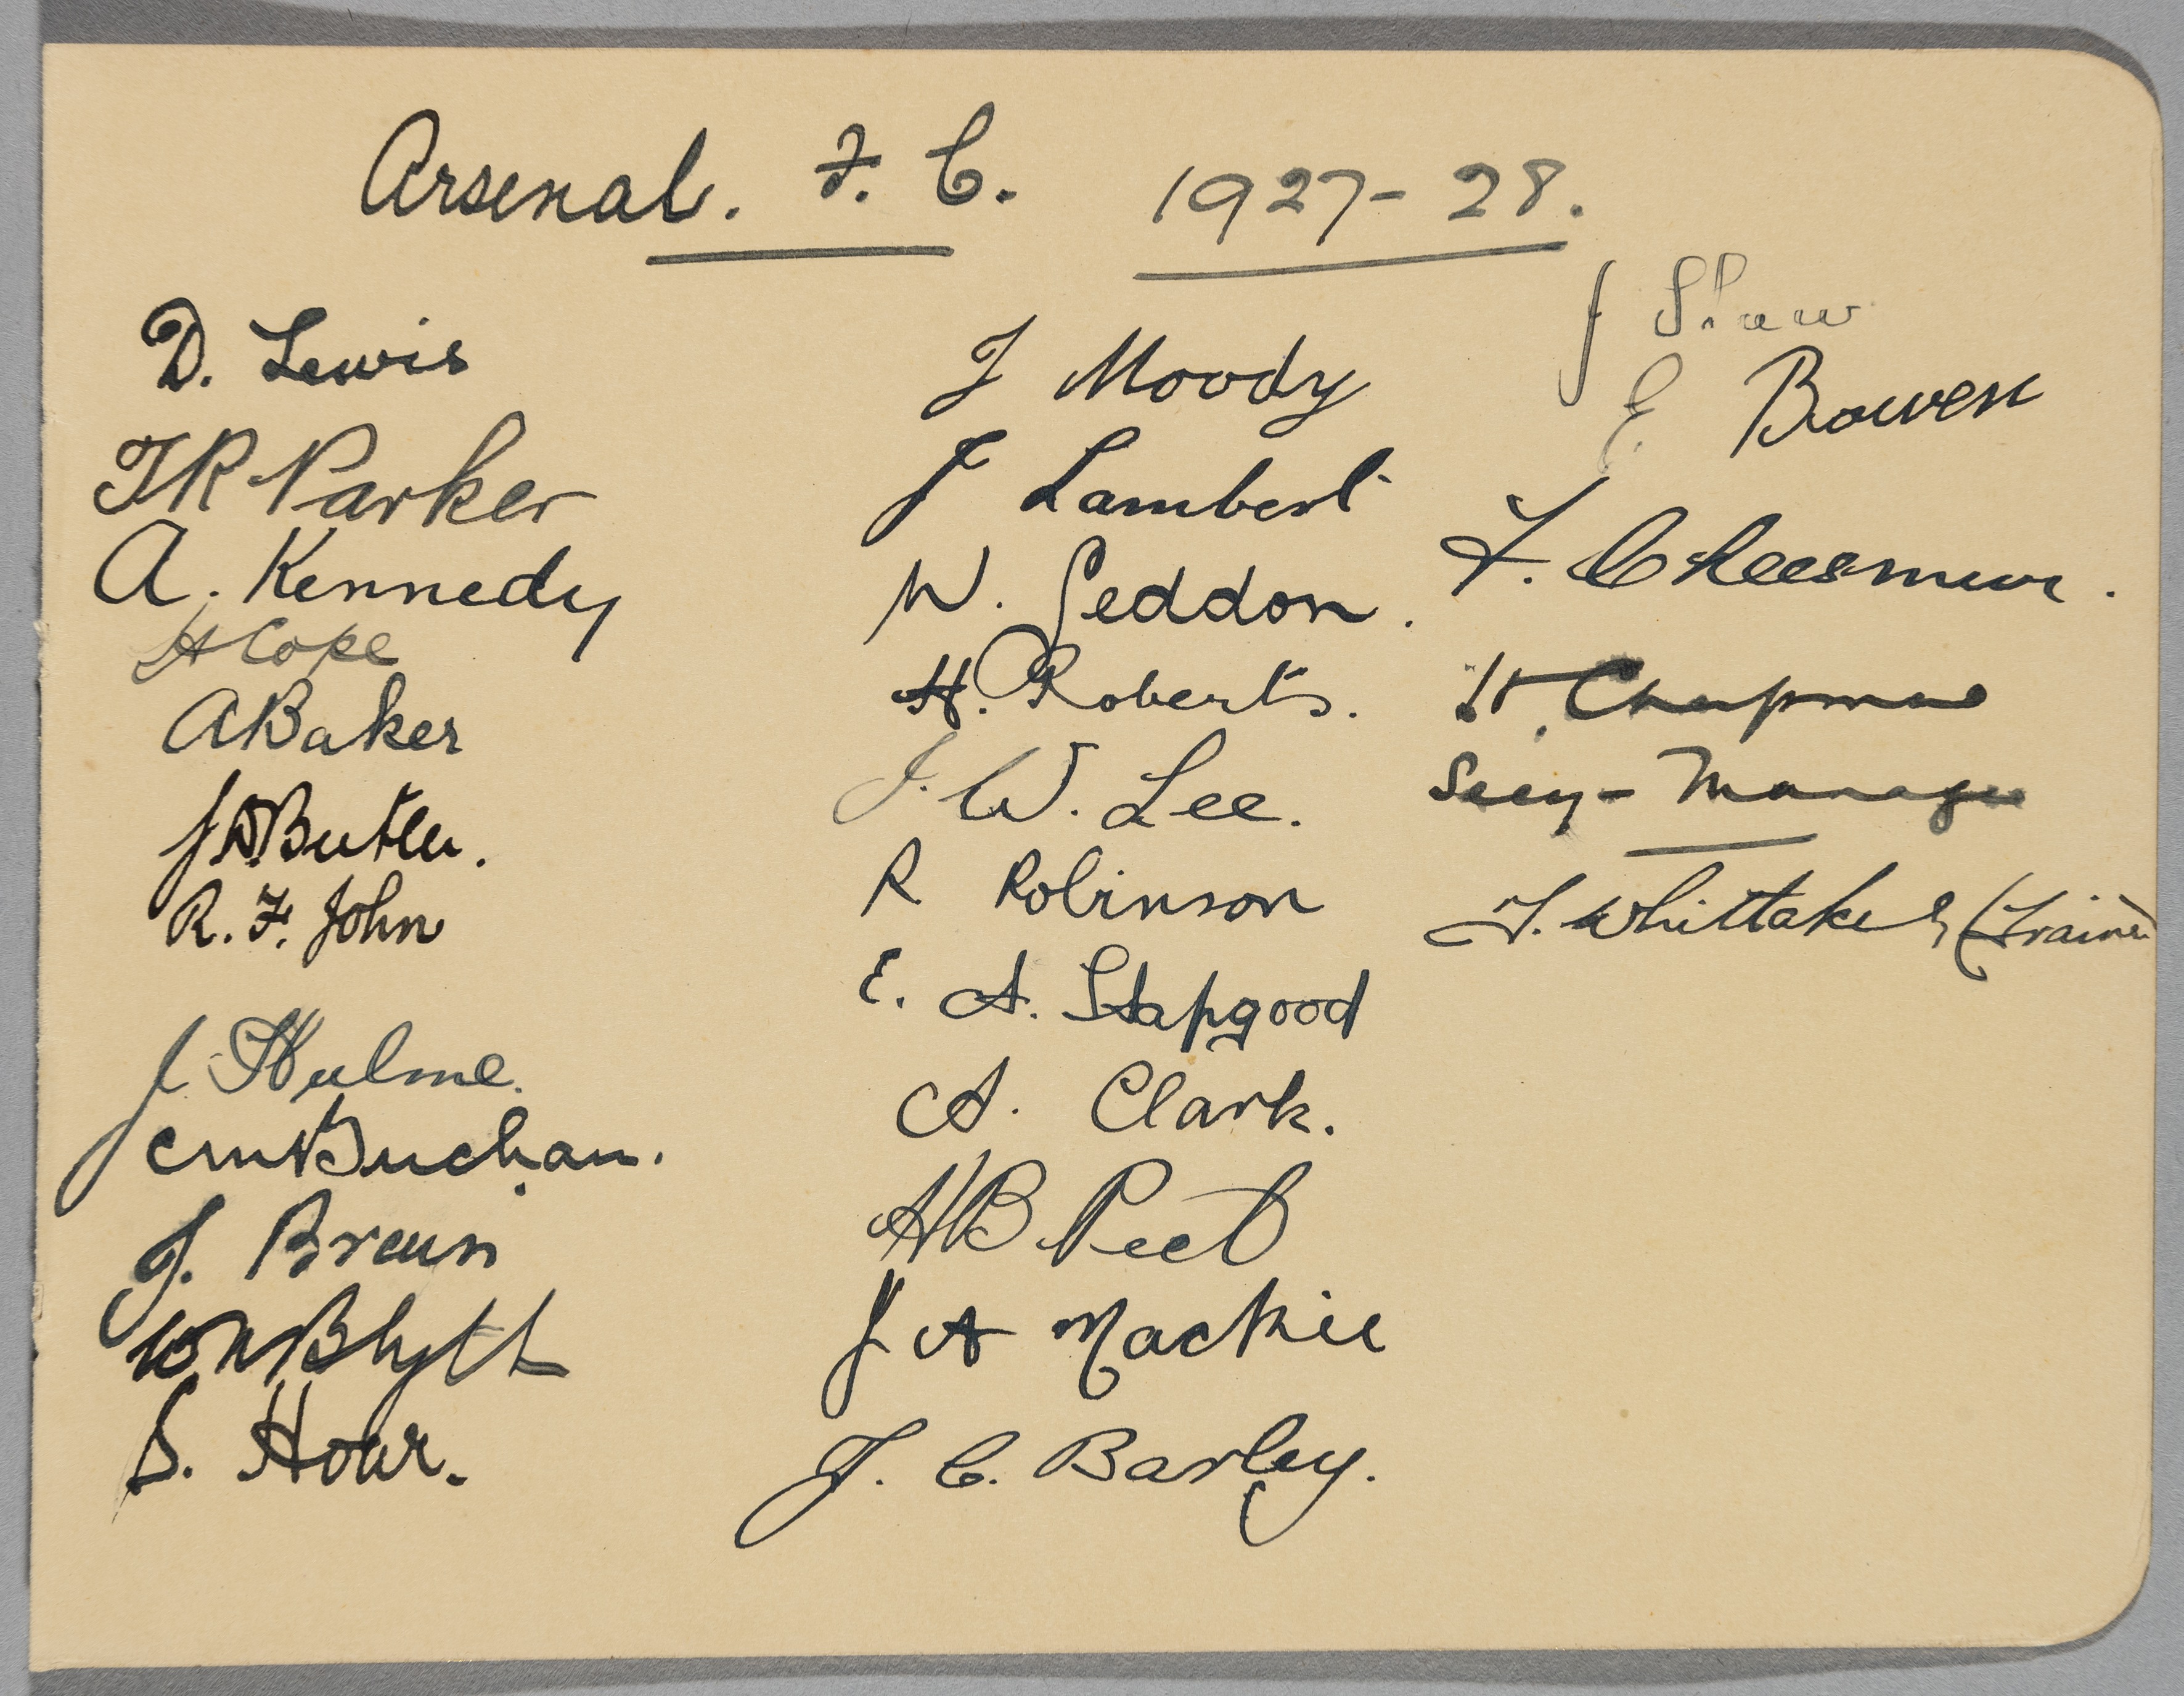 Arsenal. F. C. 1927-28.
D. Lewis
TR Parker
A. Kennedy
H Cope
A Baker
J D. Butler.
R. F. John
J Hulme.
C M Buchan.
J. Brain
W N Blyth
S. Hoar.
J Moody
J Lambert
W. Seddon.
H. Roberts.
J. W. Lee.
R Robinson
E. A. Hapgood
A. Clark.
H B Peel
J A Mackie
J. C. Barley.
J Shaw
E. Bowen
F. Cheesmur.
H. Chapman
Secy - Manager
T. Whittaker (Trainer